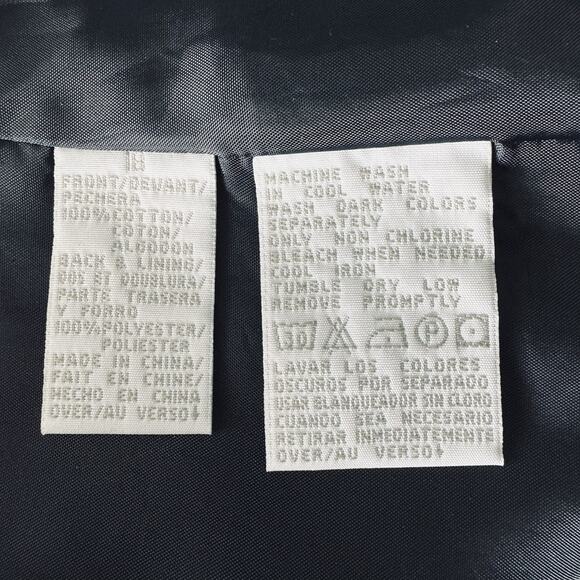 18
FRONT/DEVANT/
PECHERA
100%COTTON/
COTON/
ALGODON
BACK & LINING/
DOS ET DOUBLURA/
PARTE TRASERA
Y FORRO
100%POLYESTER/
POLIESTER
MADE IN CHINA/
FAIT EN CHINE/
HECHO EN CHINA
OVER/AU VERSO↓
MACHINE WASH
IN COOL WATER
WASH DARK COLORS
SEPARATELY
ONLY NON CHLORINE
BLEACH WHEN NEEDED
COOL IRON
TUMBLE DRY LOW
REMOVE PROMPTLY
30 P
LAVAR LOS COLORES
OSCUROS POR SEPARADO
USAR BLANQUEADOR SIN CLORO
CUANDO SEA NECESARIO
RETIRAR INMEDIATEMENTE
OVER/AU VERSO↓